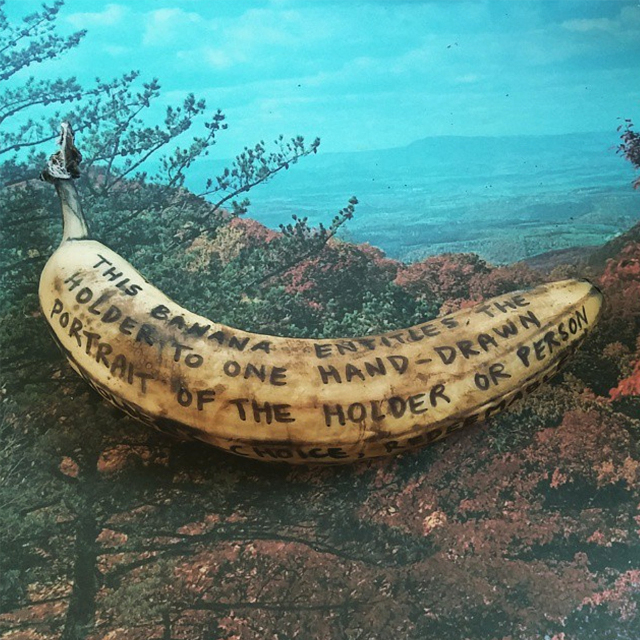 THIS BANANA ENTITLES THE
HOLDER TO ONE HAND-DRAWN
PORTRAIT OF THE HOLDER OR PERSON
CHOICE.